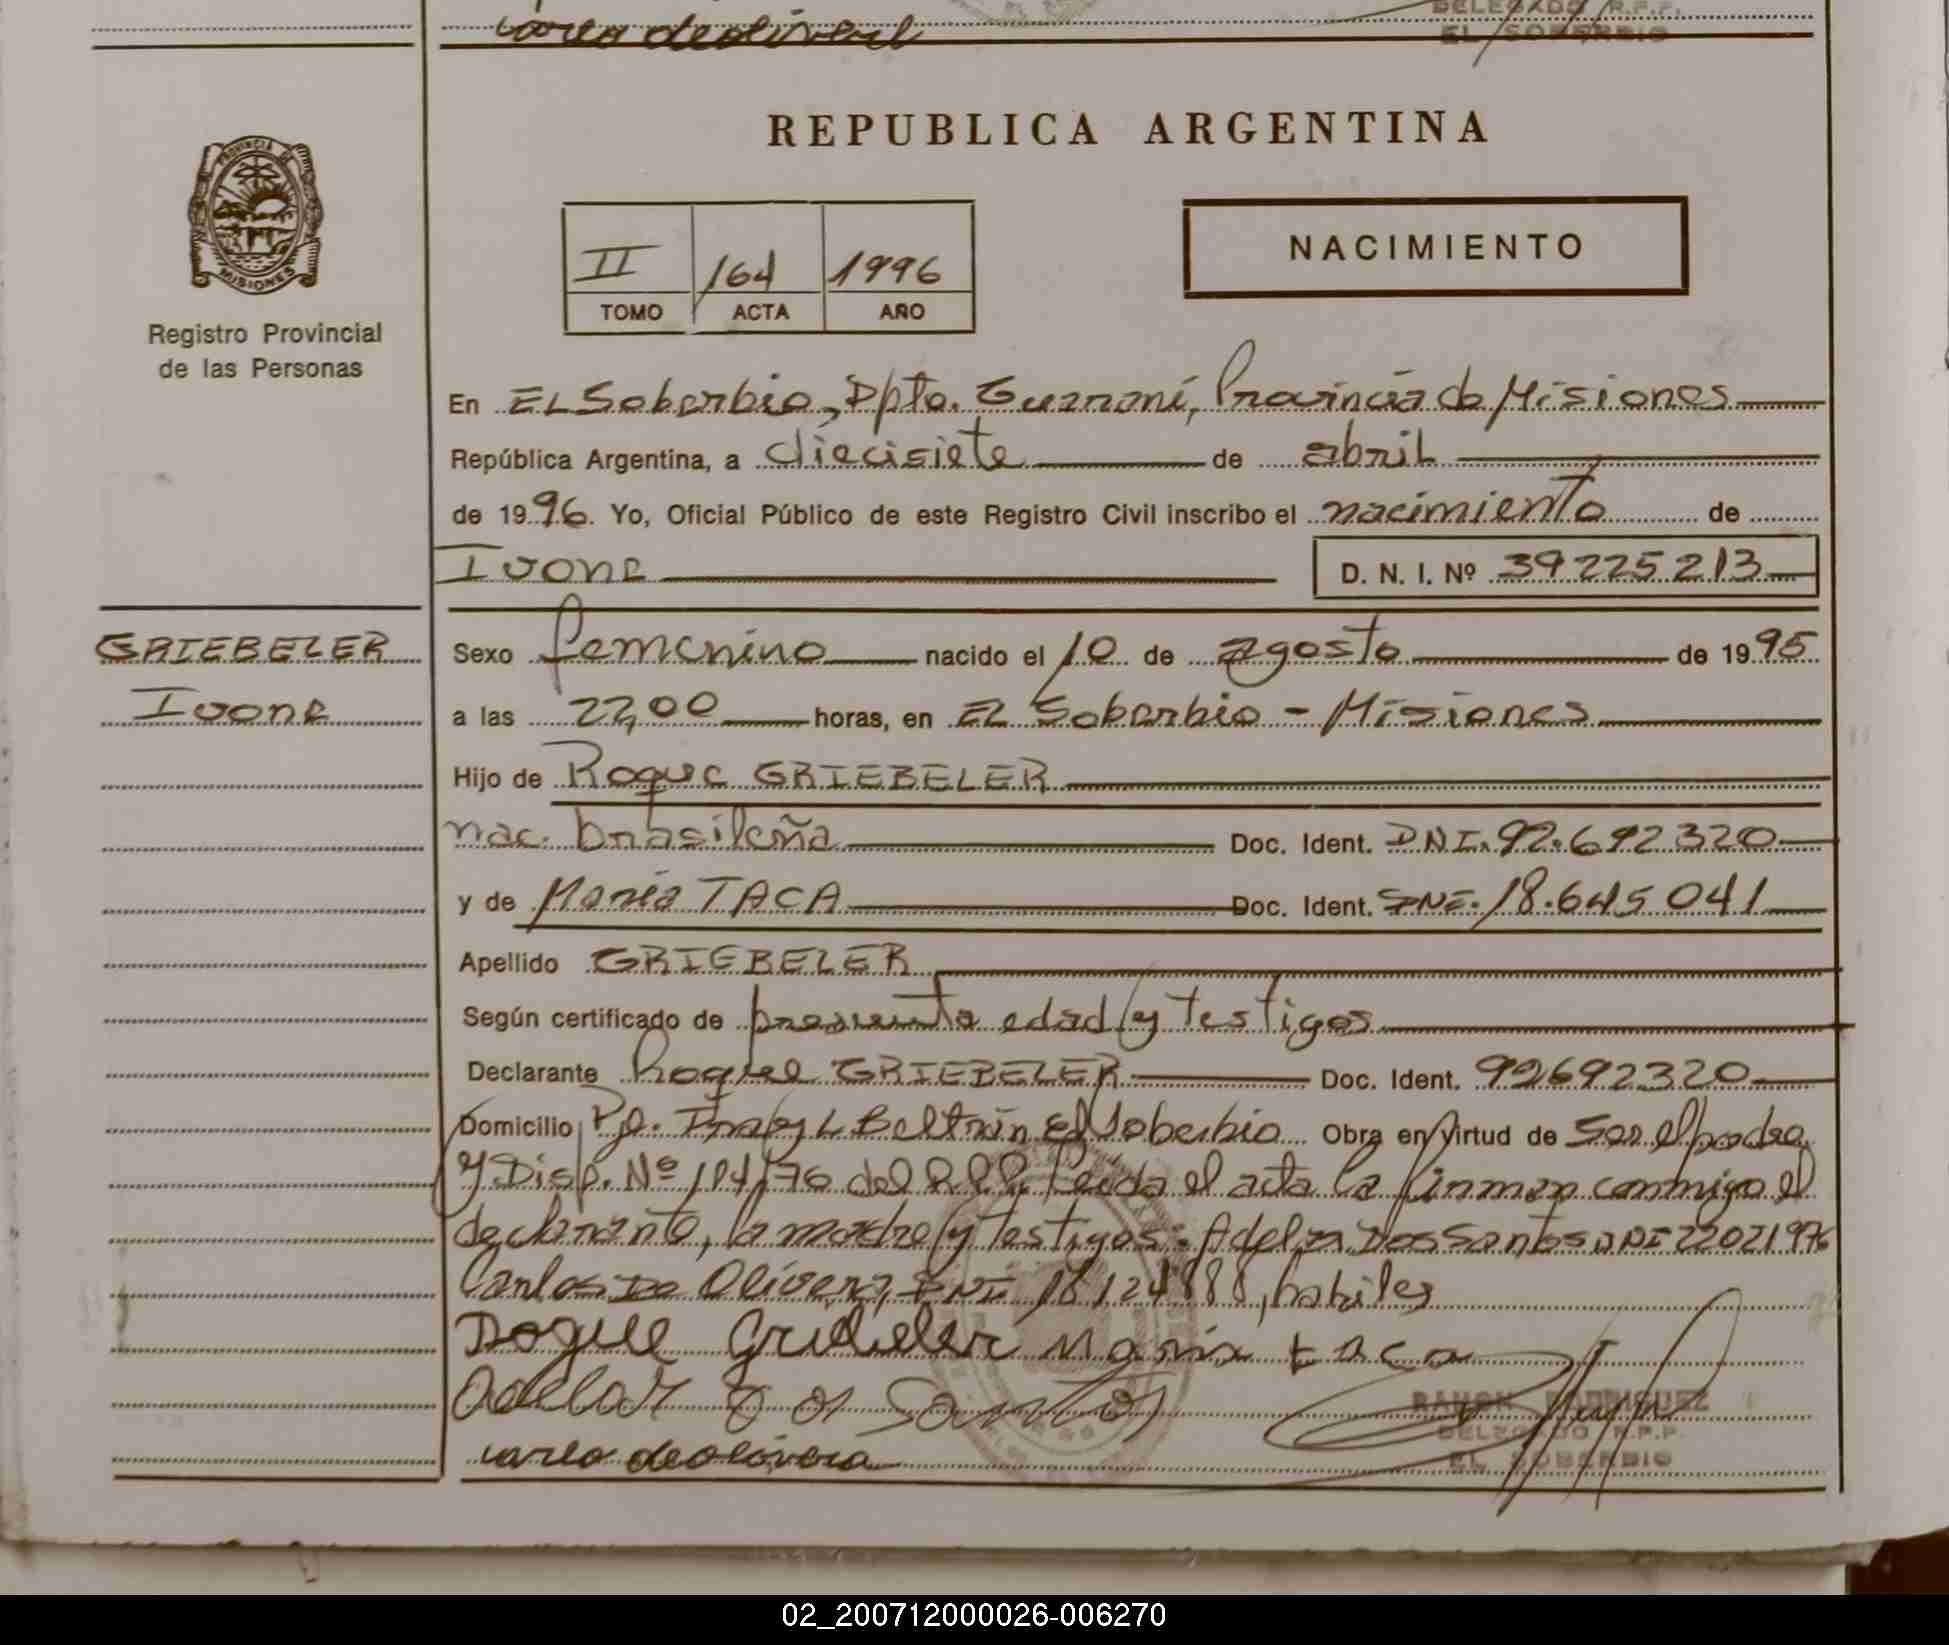 carlo deolivera
DELEGADO R.P.P.
EL SOBERBIO
REPUBLICA ARGENTINA
PROVINCIA DE
MISIONES
Registro Provincial
de las Personas
II 164 1996
TOMO ACTA AÑO
NACIMIENTO
En EL Soberbio, Dpto. Guaraní, Provincia de Misiones
República Argentina, a diecisiete de abril
de 1996. Yo, Oficial Público de este Registro Civil inscribo el nacimiento de
Ivone D. N. I. Nº 39225213
GRIEBELER
Ivone
Sexo femenino nacido el 10 de agosto de 1995
a las 22,00 horas, en EL Soberbio - Misiones
Hijo de Roque GRIEBELER
nac. brasileña Doc. Ident. DNI. 92.692320
y de María TACA Doc. Ident. DNI. 18.645041
Apellido GRIEBELER
Según certificado de presunta edad y testigos
Declarante Roque GRIEBELER Doc. Ident. 92692320
Domicilio Pje. Fray L Beltrán El Soberbio Obra en virtud de Ser el padre
y Disp. Nº 114/76 del R.P.P. Leída el acta la firman conmigo el
declarante, la madre y testigos: Adelar Dos Santos DNI 22021976
Carlos De Olivera, DNI 18124888, habiles
Roque Griebeler Maria taca
adelar dos Santos
carlo deolivera
RAMON RODRIGUEZ
DELEGADO R.P.P.
EL SOBERBIO
02_200712000026-006270